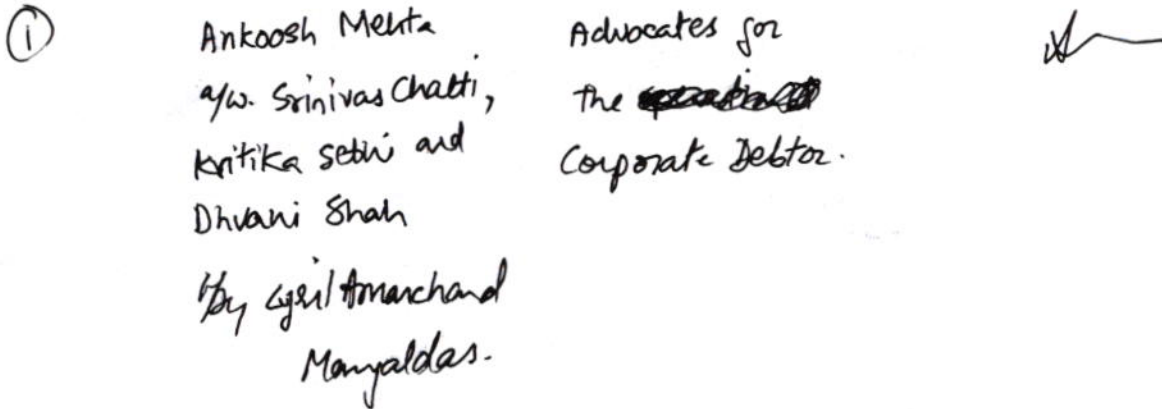 1
Ankoosh Mehta
a/w. Srinivas Chatti,
Kritika Sethi and
Dhvani Shah
i/by Cyril Amarchand
Mangaldas.
Advocates for
the
Corporate Debtor.